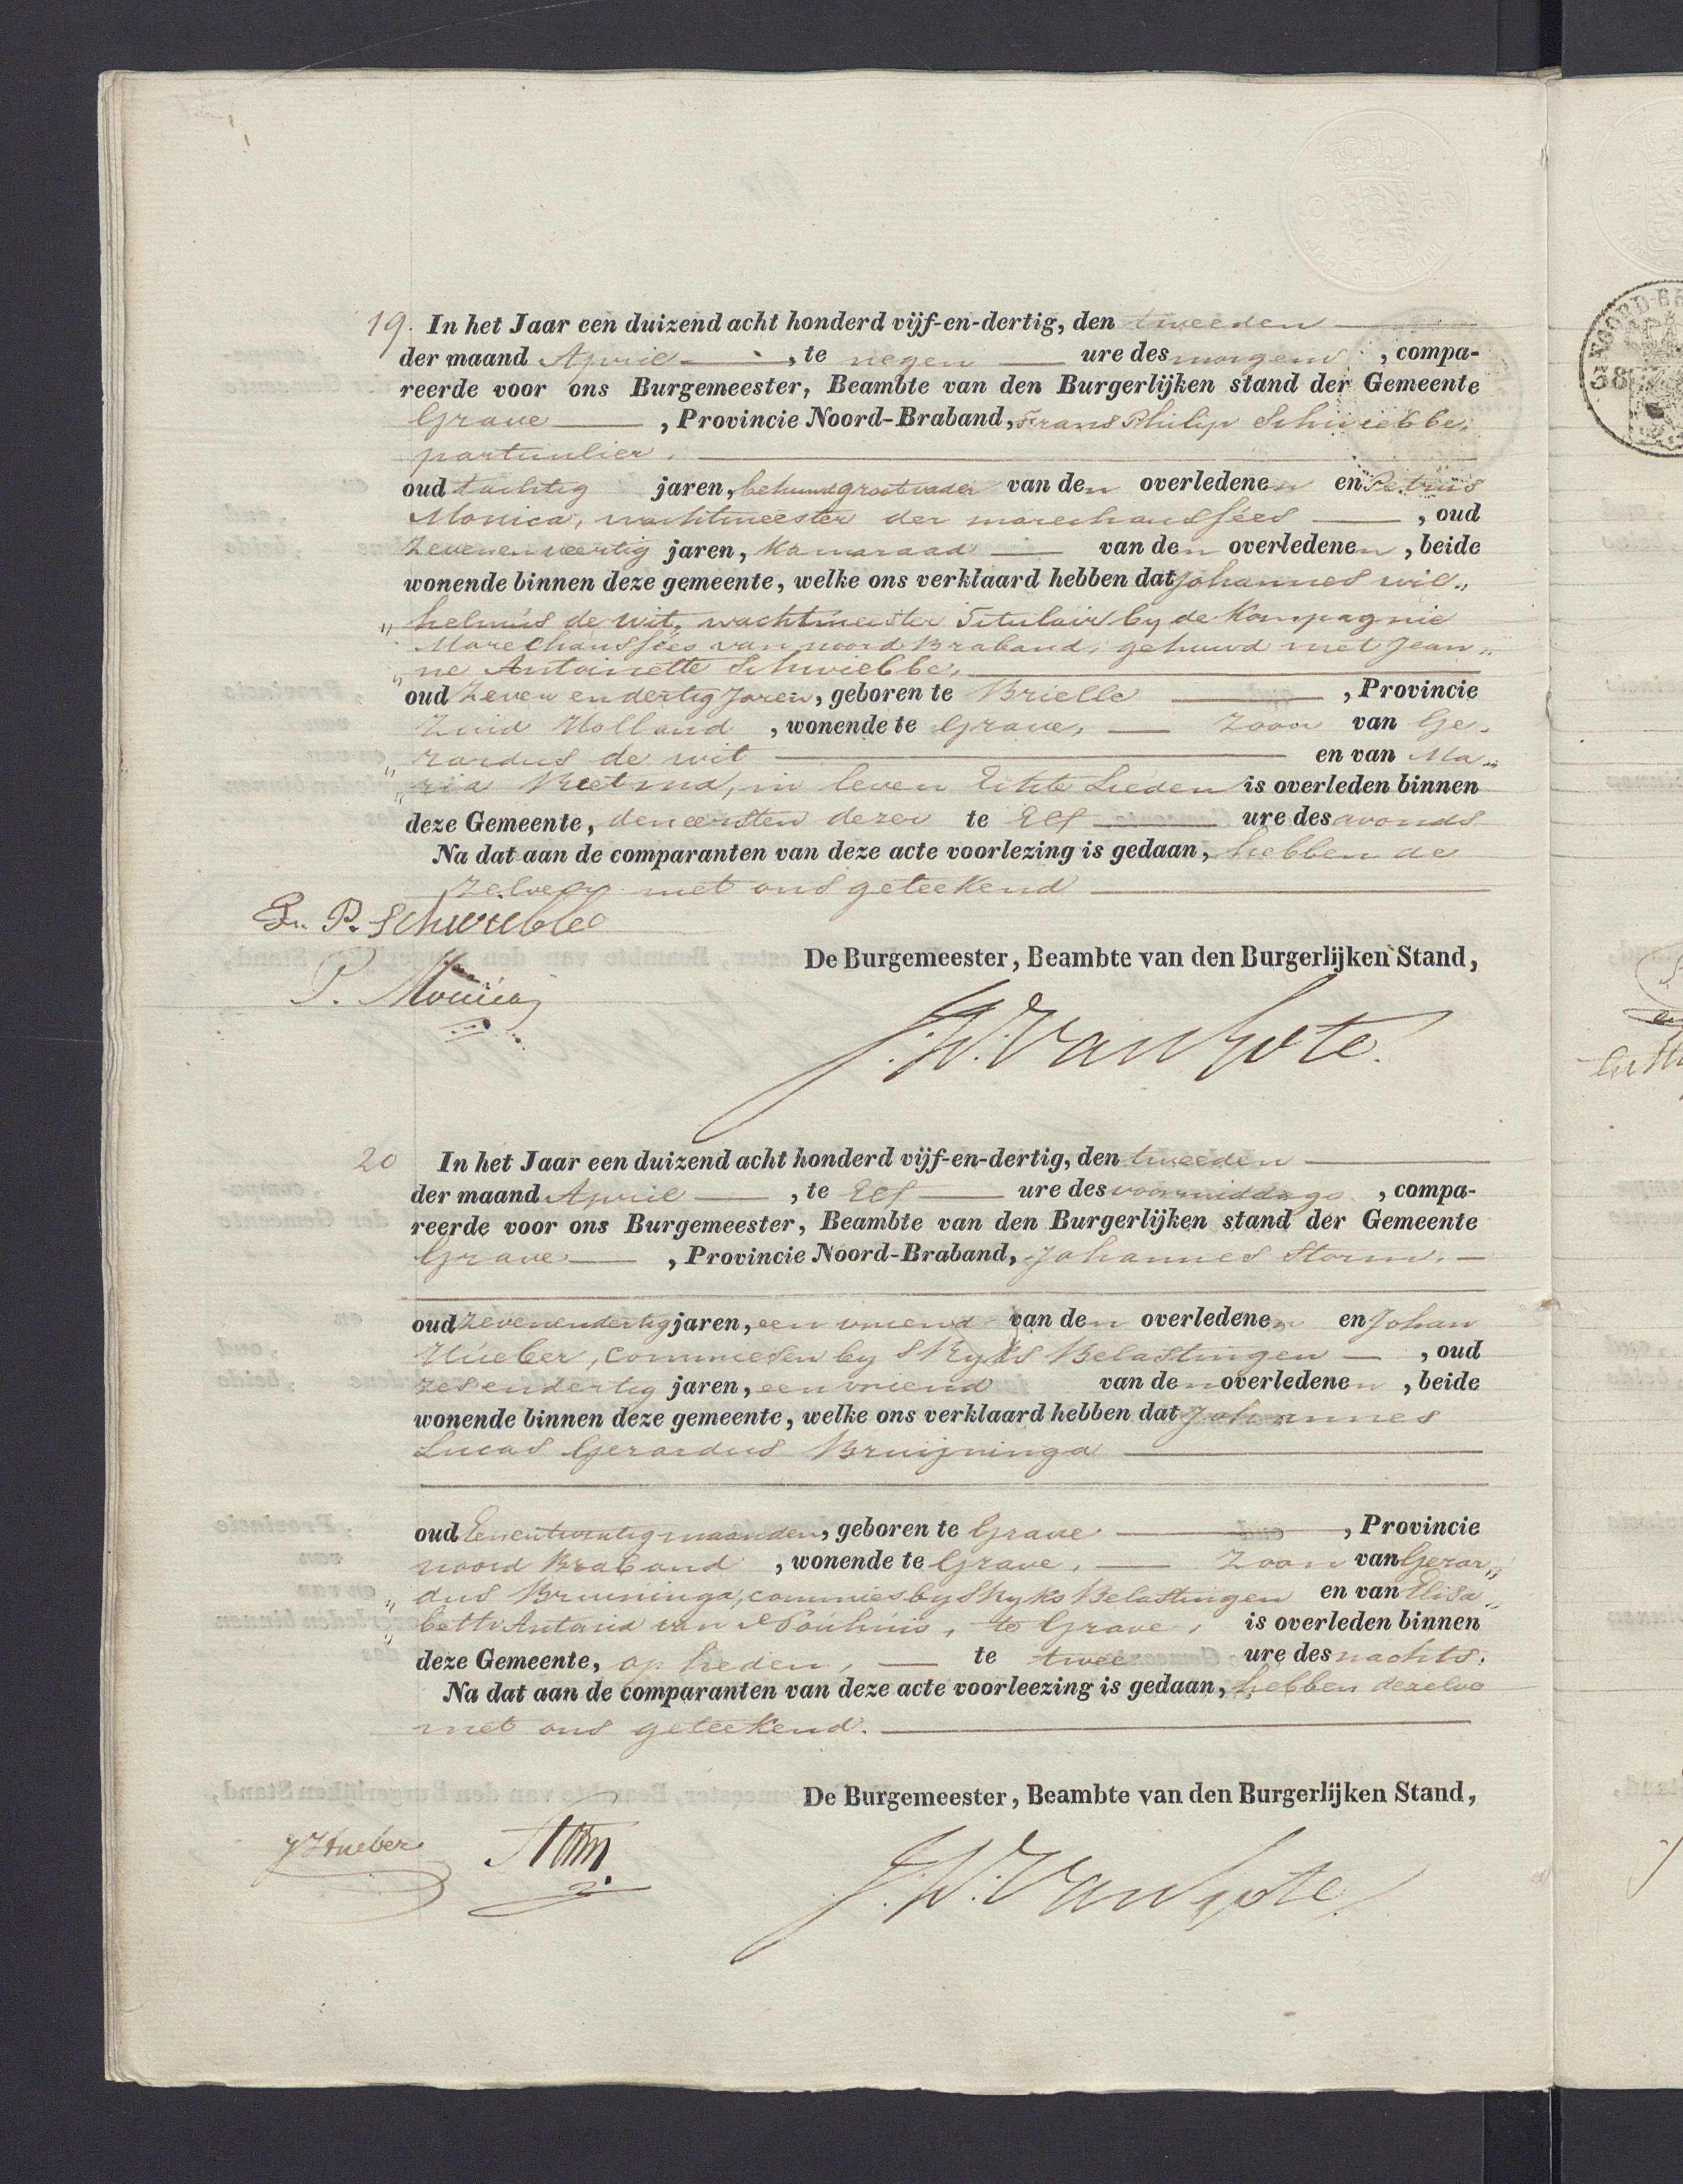 19. In het Jaar een duizend acht honderd vijf-en-dertig, den tweeden
der maand April, te negen ure des morgens, compa-
reerde voor ons Burgemeester, Beambte van den Burgerlijken stand der Gemeente
Grave, Provincie Noord-Braband, Frans Philip Schwiebbe,
particulier.
oud tachtig jaren, behuwdgrootvader van den overledenen en Petrus
Monica, wachtmeester der marechaussées, oud
Zevenenveertig jaren, Kamaraad van den overledenen, beide
wonende binnen deze gemeente, welke ons verklaard hebben dat Johannes wil„
„helmús de wit, wachtmeester Titulair by de Kompagnie
Marechaussées van noord Braband, gehuwd met Jean„
„ne Antoinette Schwiebbe,
oud Zeven en dertig Jaren, geboren te Brielle, Provincie
Zuid Holland, wonende te Grave, Zoon van Ge„
„rardus de wit en van Ma„
„ria in leven Echte Lieden is overleden binnen
deze Gemeente, den eersten dezer te Elf ure des avonds
Na dat aan de comparanten van deze acte voorlezing is gedaan, hebben de
zelven met ons geteekend
Fr. P. Schwiebbe
P. Monica
De Burgemeester, Beambte van den Burgerlijken Stand,
20 In het Jaar een duizend acht honderd vijf-en-dertig, den tweeden
der maand April, te Elf ure des voormiddags, compa-
reerde voor ons Burgemeester, Beambte van den Burgerlijken stand der Gemeente
Grave, Provincie Noord-Braband, Johannes Storm.
oud Zevenendertig jaren, een vriend van den overledenen en Johan
Húeber, commiesen by S Ryks Belastingen, oud
zesendertig jaren, een vriend van den overledenen, beide
wonende binnen deze gemeente, welke ons verklaard hebben dat Johannes
Lucas Gerardus Bruijninga
oud Eenentwintig maanden, geboren te Grave, Provincie
noord Braband, wonende te Grave, Zoon van Gerar„
„dus Bruininga, commies by S Ryks Belastingen en van Elisa„
„beth Antonia van te Grave, is overleden binnen
deze Gemeente, op heden, te twee ure des nachts.
Na dat aan de comparanten van deze acte voorleezing is gedaan, hebben dezelve
met ons geteekend.
De Burgemeester, Beambte van den Burgerlijken Stand,
J Hueber Storm
NOORD-BR
38